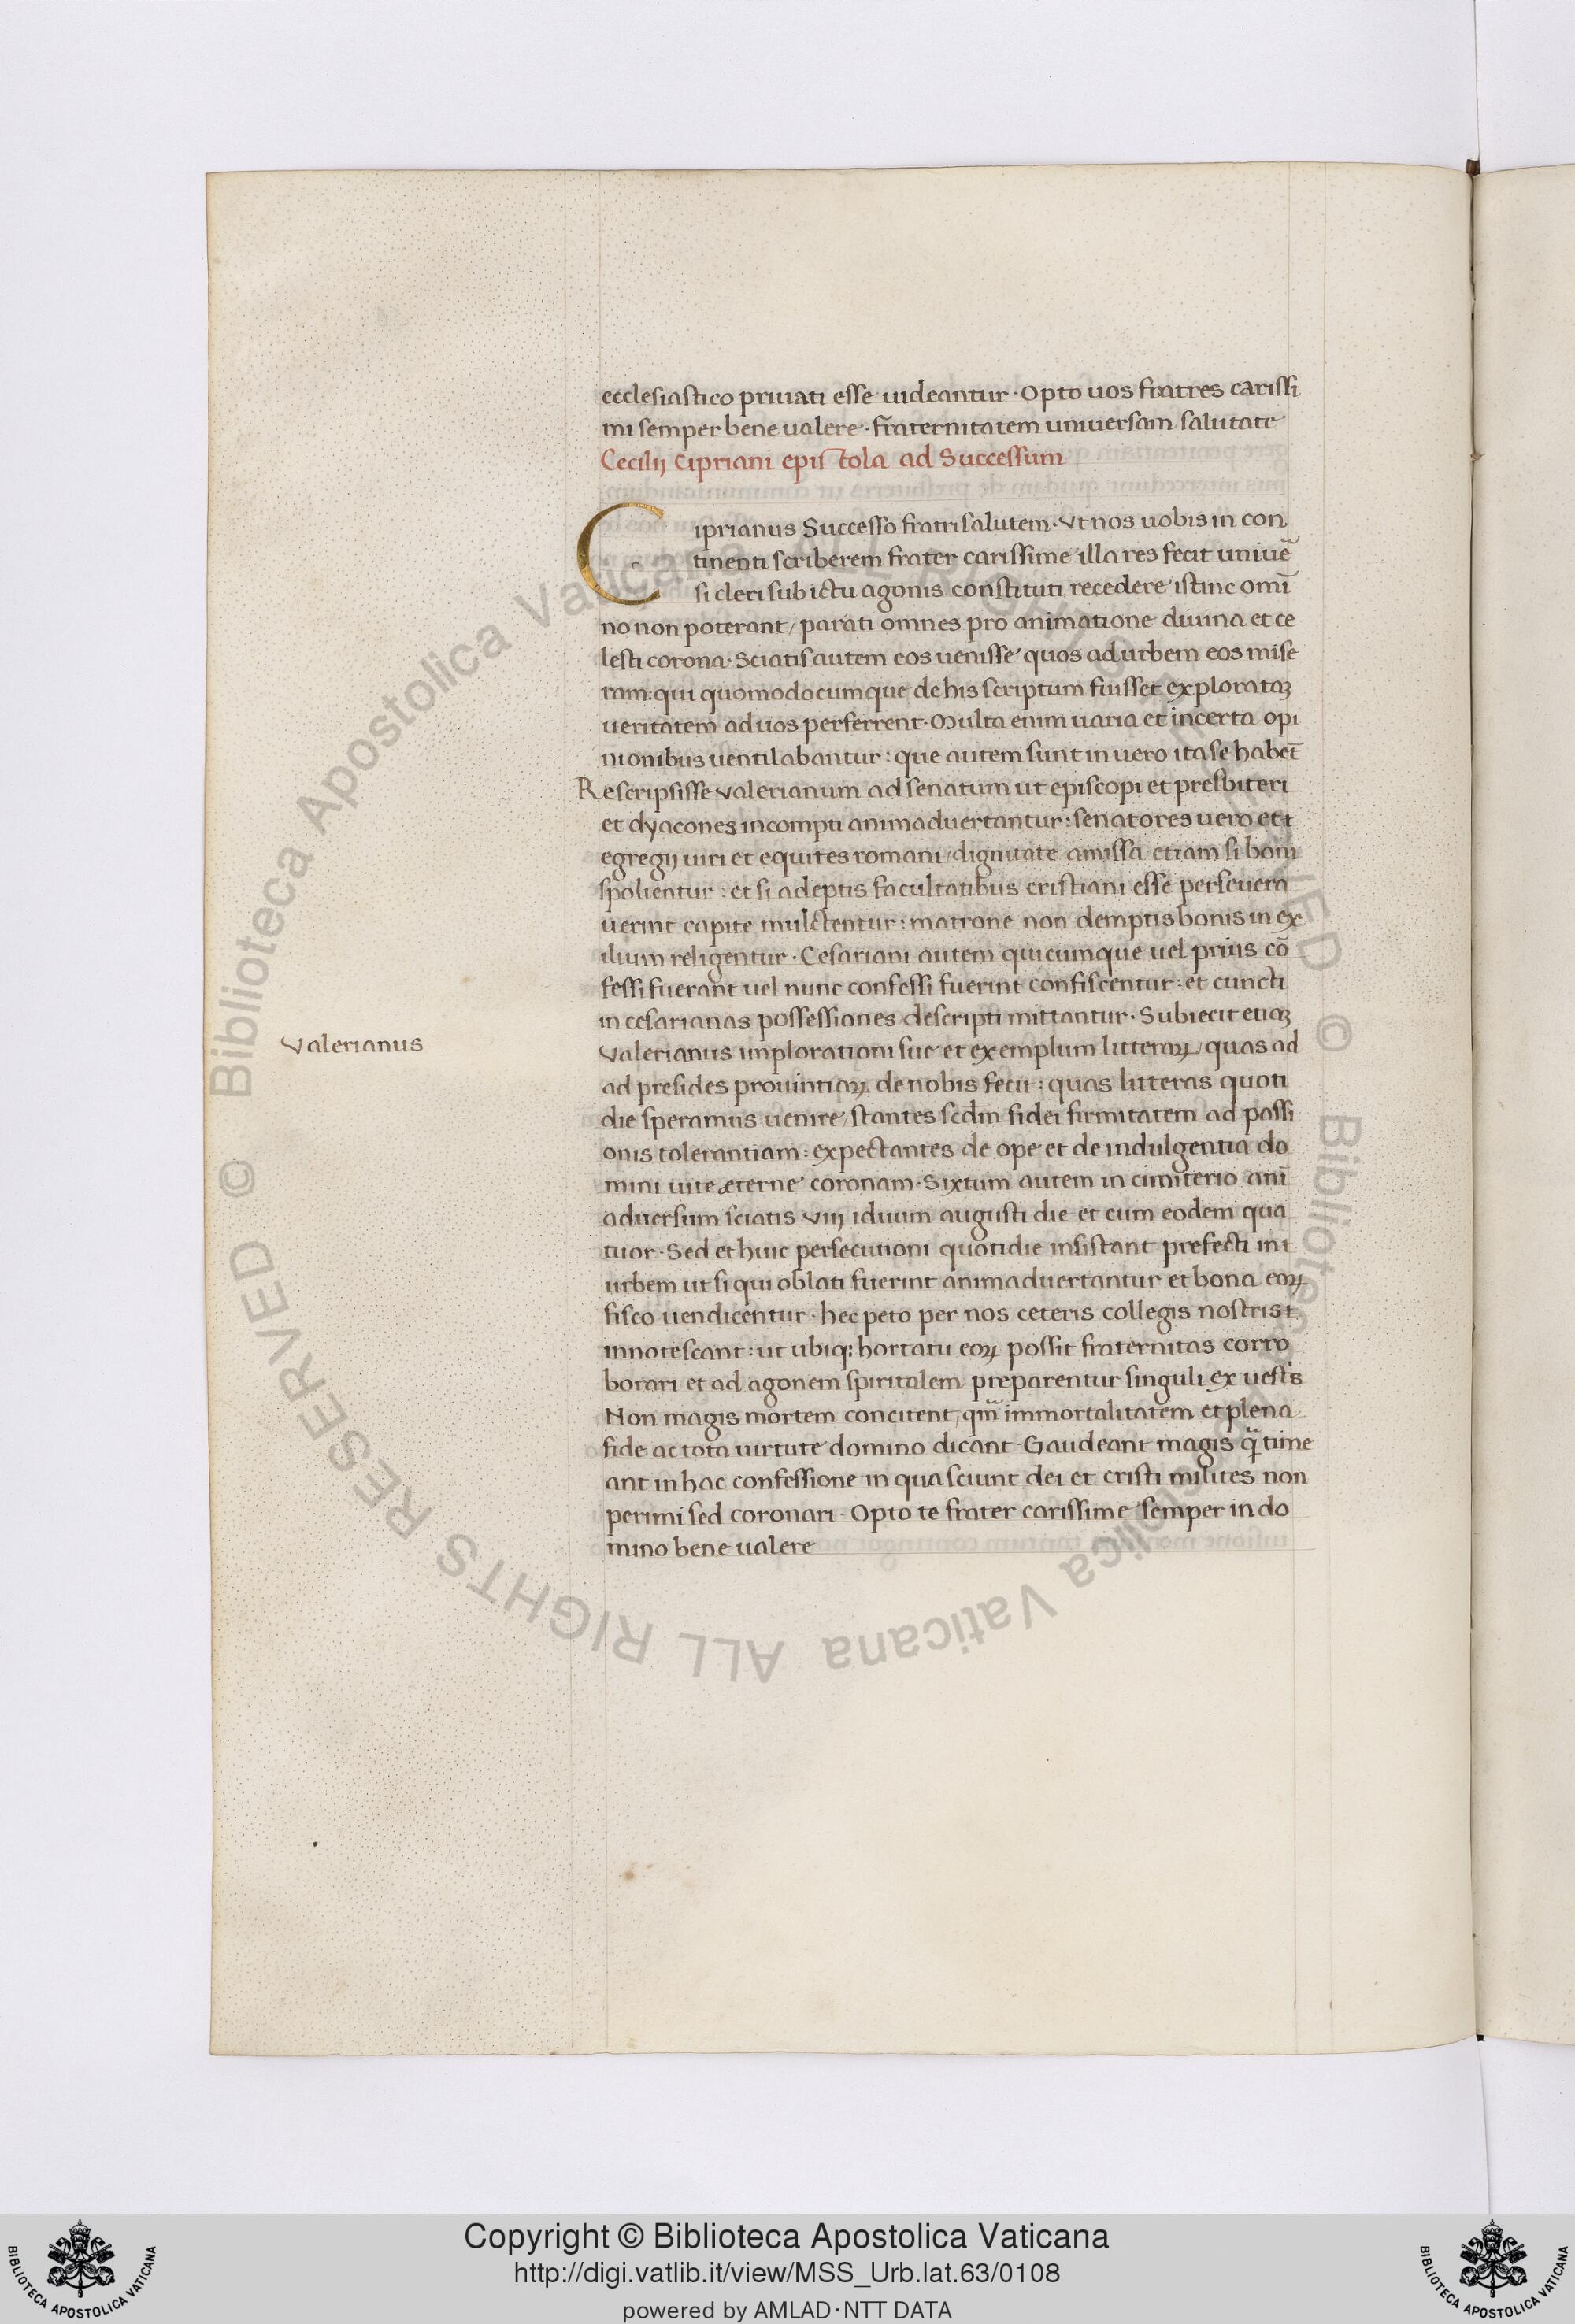 ecclesiastico priuati esse uideantur · Opto uos fratres carissi
mi semper bene ualere · fr̄aternitatem uniuersam salutate
Cecilij Cipriani epistola ad Successum
Ciprianus Successo fratri salutem · Vt nos uobis in con
tinenti scriberem frater carissime illa res fecit uniuē
si cleri sub ictu agonis constituti recedere istinc omī
no non poterant / parati omnes pro animatione diuina et ce
lesti corona · Sciatis autem eos uenisse quos ad urbem eos mise
ram: qui quomodocumque de his scriptum fuisset exploratаꝫ
ueritatem ad uos perferrent · Multa enim uaria et incerta opi
nionibus uentilabantur : que autem sunt in uero ita se habet̄
Rescripsisse Valerianum ad senatum ut episcopi et presbiteri
et dyacones incompti animaduertantur : senatores uero et
egregij uiri et equites romani / dignitate amissa etiam si boni
spolientur : et si adeptis facultatibus cristiani esse perseuera
uerint capite mulctentur : matrone non demptis bonis in ex
ilium religentur · Cesariani autem quicumque uel prius cō
fessi fuerant uel nunc confessi fuerint confiscentur : et cuncti
in cesarianas possessiones descripti mittantur · Subiecit etiaꝫ
Valerianus
Valerianus implorationi sue et exemplum litteraꝝ quas ad
ad presides prouintiaꝝ de nobis fecit : quas litteras quoti
die speramus uenire / stantes scd̄m fidei firmitatem ad passi
onis tolerantiam : expectantes de ope et de indulgentia do
mini uite æterne coronam · Sixtum autem in cimiterio anī
aduersum sciatis viij iduum augusti die et cum eodem qua
tuor · Sed et huic persecutioni quotidie insistant prefecti in
urbem ut si qui oblati fuerint animaduertantur et bona eoꝝ
fisco uendicentur · hec peto per nos ceteris collegis nostris
innotescant : ut ubiq; hortatu eoꝝ possit fraternitas corro
borari et ad agonem spiritalem preparentur singuli ex uestis
Non magis mortem concitent, qm̄ immortalitatem et plena
fide ac tota uirtute domino dicant · Gaudeant magis q̄ time
ant in hac confessione in qua sciunt dei et cristi milites non
perimi sed coronari · Opto te frater carissime semper in do
mino bene ualere
© Biblioteca Apostolica Vaticana ALL RIGHTS RESERVED © Biblioteca Apostolica Vaticana ALL RIGHTS RESERVED
BIBLIOTECA APOSTOLICA VATICANA
Copyright © Biblioteca Apostolica Vaticana
http://digi.vatlib.it/view/MSS_Urb.lat.63/0108
powered by AMLAD·NTT DATA
BIBLIOTECA APOSTOLICA VATICANA